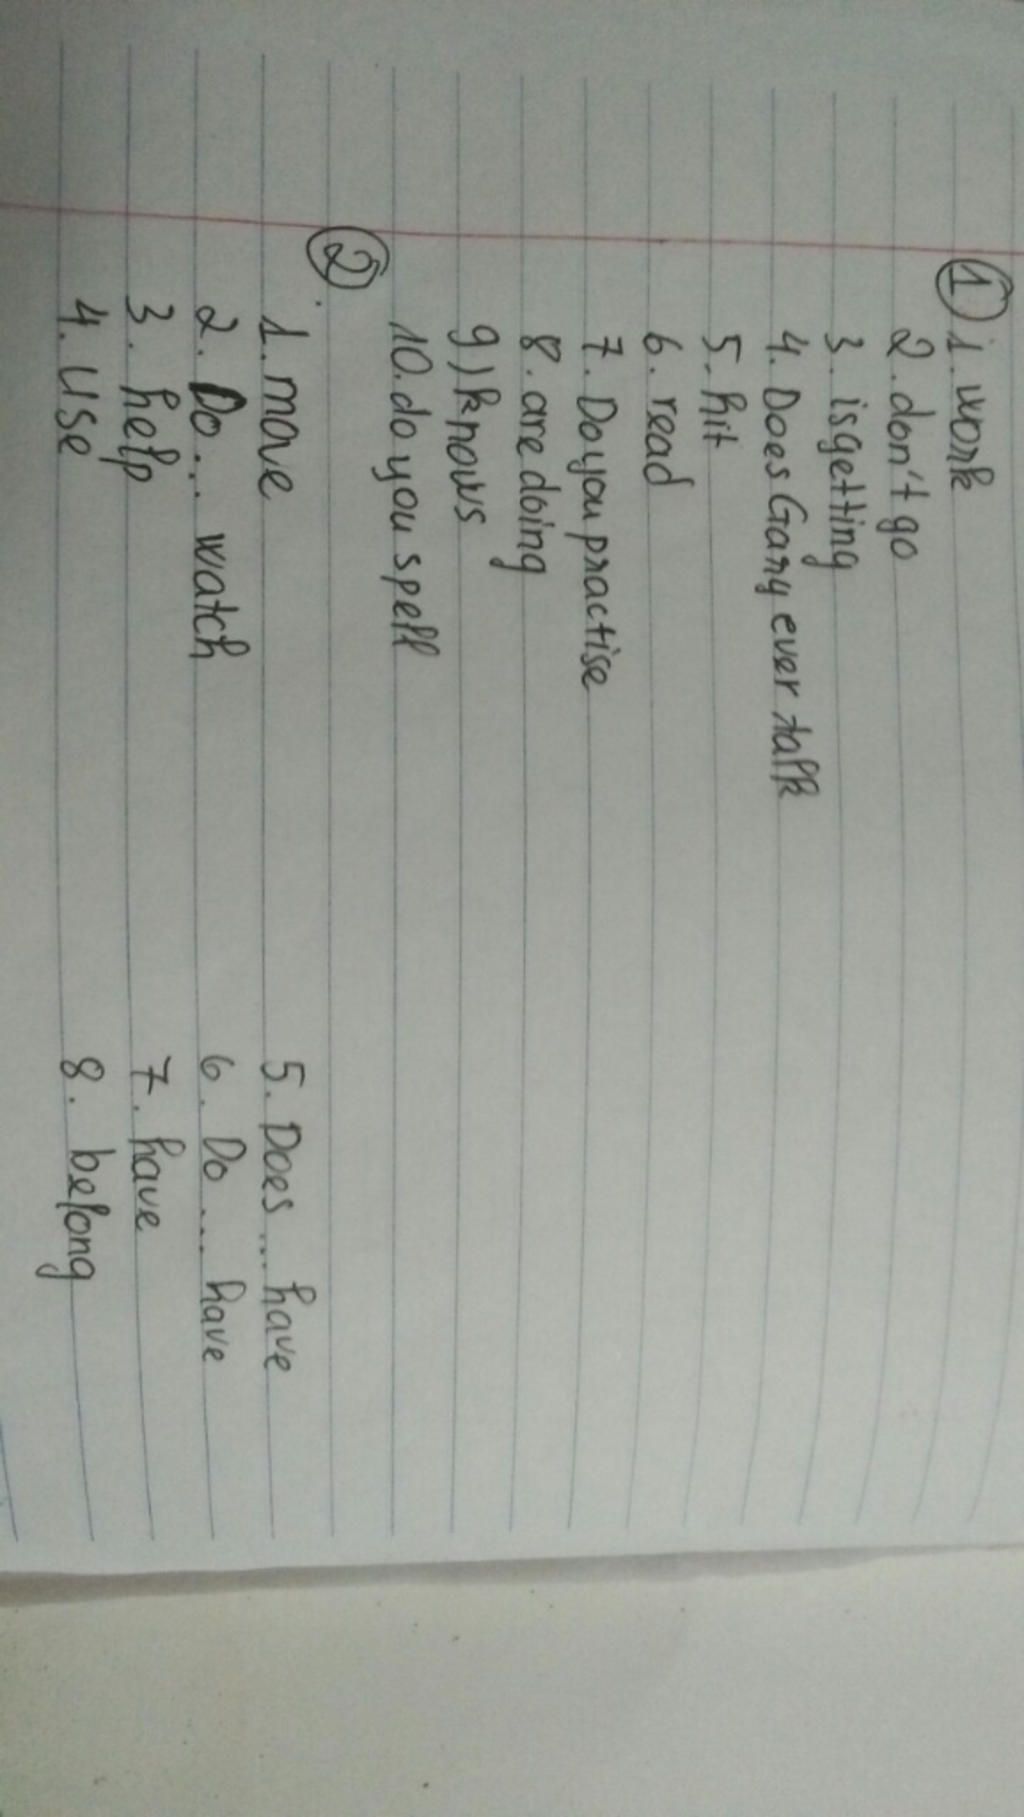 ① 1. work
2. don't go
3. is getting
4. Does Gary ever talk
5. hit
6. read
7. Do you practise
8. are doing
9) knows
10. do you spell
②.
1. move 5. Does ... have
2. Do ... watch 6. Do ... have
3. help 7. have
4. use 8. belong